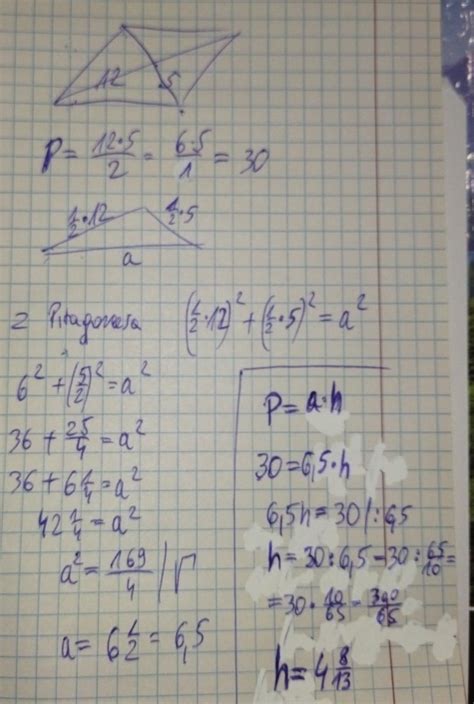 12 5
P = 12·5/2 = 6·5/1 = 30
1/2·12 1/2·5
a
z Pitagorasa (1/2·12)² + (1/2·5)² = a²
6² + (5/2)² = a²
36 + 25/4 = a²
36 + 6 1/4 = a²
42 1/4 = a²
a² = 169/4 /√
a = 6 1/2 = 6,5
P = a·h
30 = 6,5·h
6,5h = 30 /: 6,5
h = 30 : 6,5 = 30 : 65/10 =
= 30 · 10/65 = 300/65
h = 4 8/13